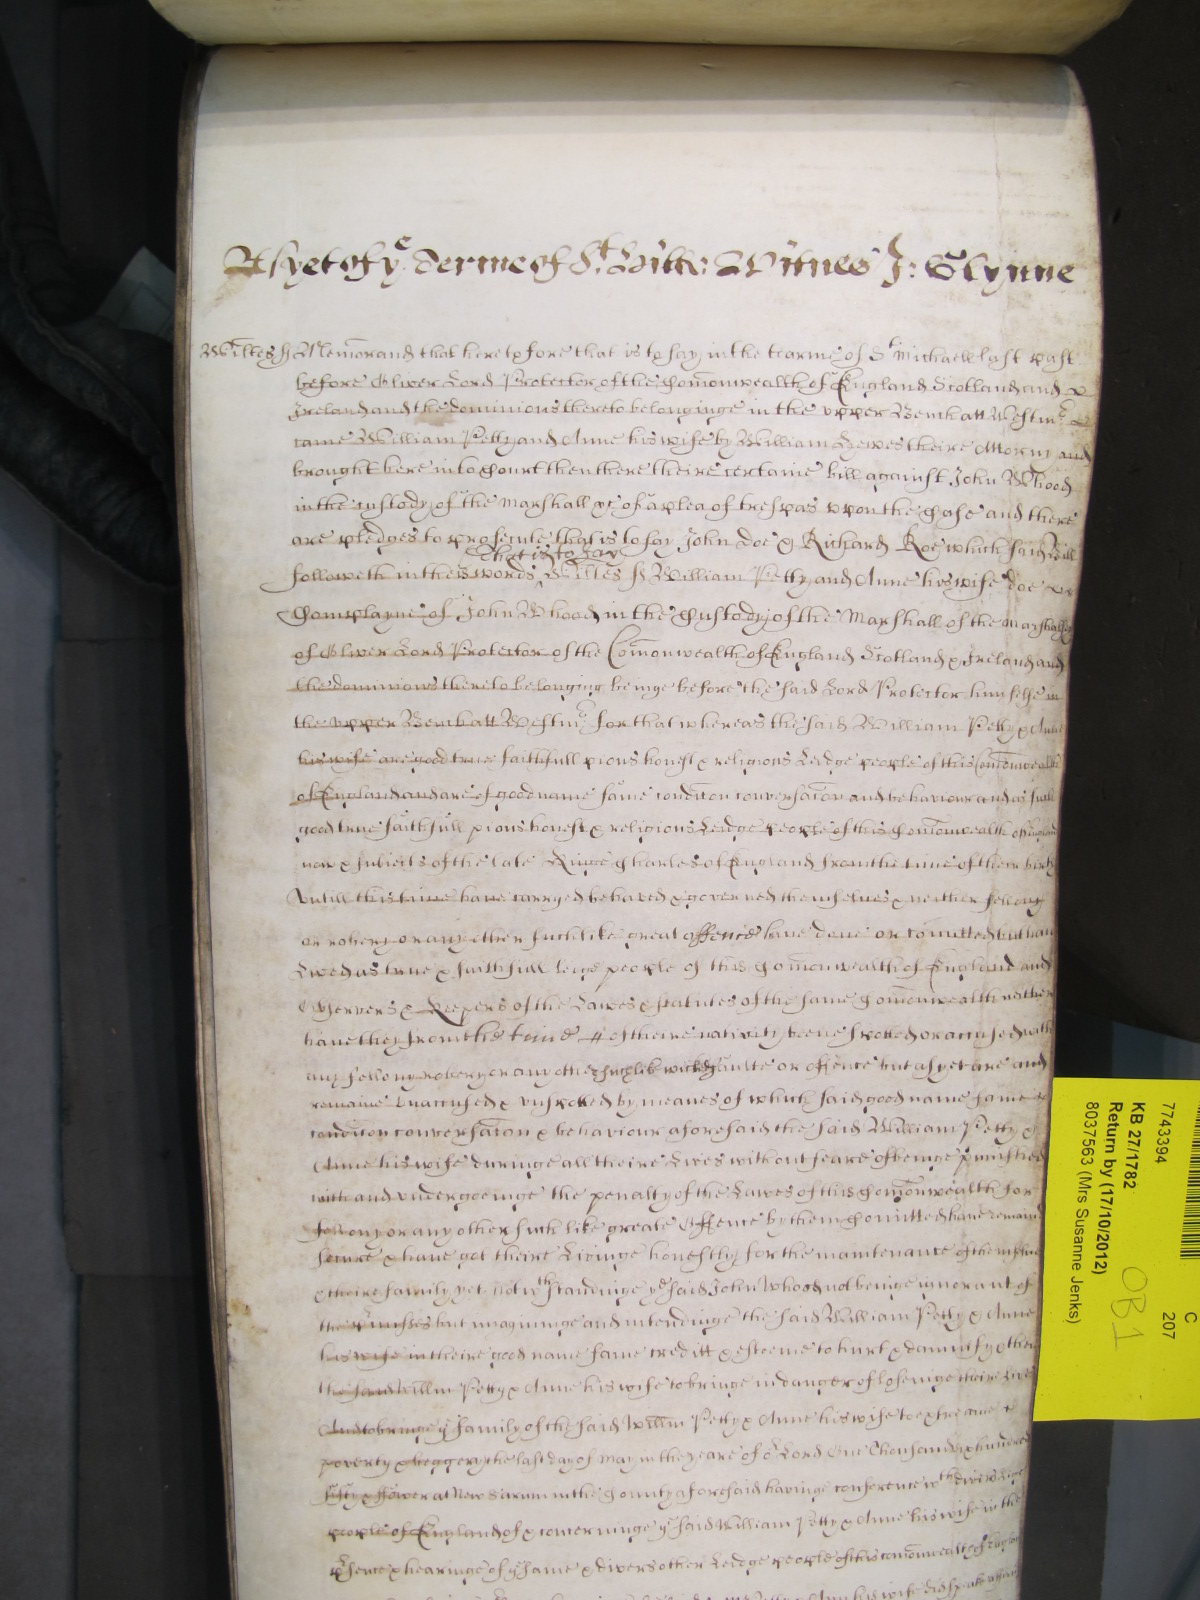 As yet of ye Terme of St. Hill: Witnes J: Glynne
Wiltes ss Memorand that heretofore that is to say in the tearme of St Michaell last past
before Oliver Lord Protector of the Comonwealth of England Scotland and
Ireland and the dominions thereto belonginge in the upper Bench att Westmr
came William Petty and Anne his wife by William Hewes theire Attorny and
brought here into Court then there theire certaine bill against John Whood
in the custody of the Marshall &c of a plea of trespas uppon the Case and there
are pledges to prosecute that is to say John Doe & Richard Roe which said Bill
that is to say
followeth in theis words Wiltes ss William Petty and Anne his wife doe
Complayne of John Whood in the Custody of the Marshall of the Marshalsey
of Oliver Lord Protector of the Comonwealth of England Scotland & Ireland and
the dominions thereto belonging beinge before the said Lord Protector himselfe in
the upper Bench att Westmr for that whereas the said William Petty & Anne
his wife are good true faithfull pious honest & religious Leidge people of this Comonwealth
of England and are of good name fame condicon conversacon and behaviour and as such
good true faithfull pious honest & religious Leidge people of this Comonwealth of England
now & subiects of the late Kinge Charles of England from the time of their birth
untill this time have carryed behaved & governed themselves & neither fellony
or robery or any other such like great offence have done or comitted but have
Lived as true & faithfull leige people of this Comonwealth of England and
Observers & Keepers of the Lawes & statutes of the same Comonwealth neither
have they from the time of theire nativity beene spotted or accused with
any fellony robery or any other such like wicked faulte or offence but as yet are and
remaine unaccused & unspotted by meanes of which said good name fame &
condicon conversacon & behaviour aforesaid the said William Petty &
Anne his wife duringe all theire Lives without feare of beinge punished
with and undergoeinge the penalty of the Lawes of this Comonwealth for
fellony or any other such like greate Offence by them Comitted have remained
secure & have got theire Livinge honestly for the maintenance of themselves
& theire family yet notwthstandinge ye said John Whood not beinge ignorant of
the premisses but imagininge and intendinge the said William Petty & Anne
his wife in theire good name fame creditt & esteeme to hurt & damnify & then
the said Willm Petty & Anne his wife to bringe in danger of loseinge theire Lives
And to bringe ye family of the said Willm Petty & Anne his wife to extreame
poverty & beggery the last day of May in the yeare of or Lord One Thousand six hundred
fifty & fower at New Sarum in the County aforesaid havinge conference wth divers Leige
people of England of & concerninge ye said William Petty & Anne his wife in the
presence & hearinge of ye same & divers other Leidge people of this comonwealth of England
Petty & Ann his wife did speake
7743394
KB 27/1782
Return by (17/10/2012)
8037563 (Mrs Susanne Jenks)
C
207
OB 1